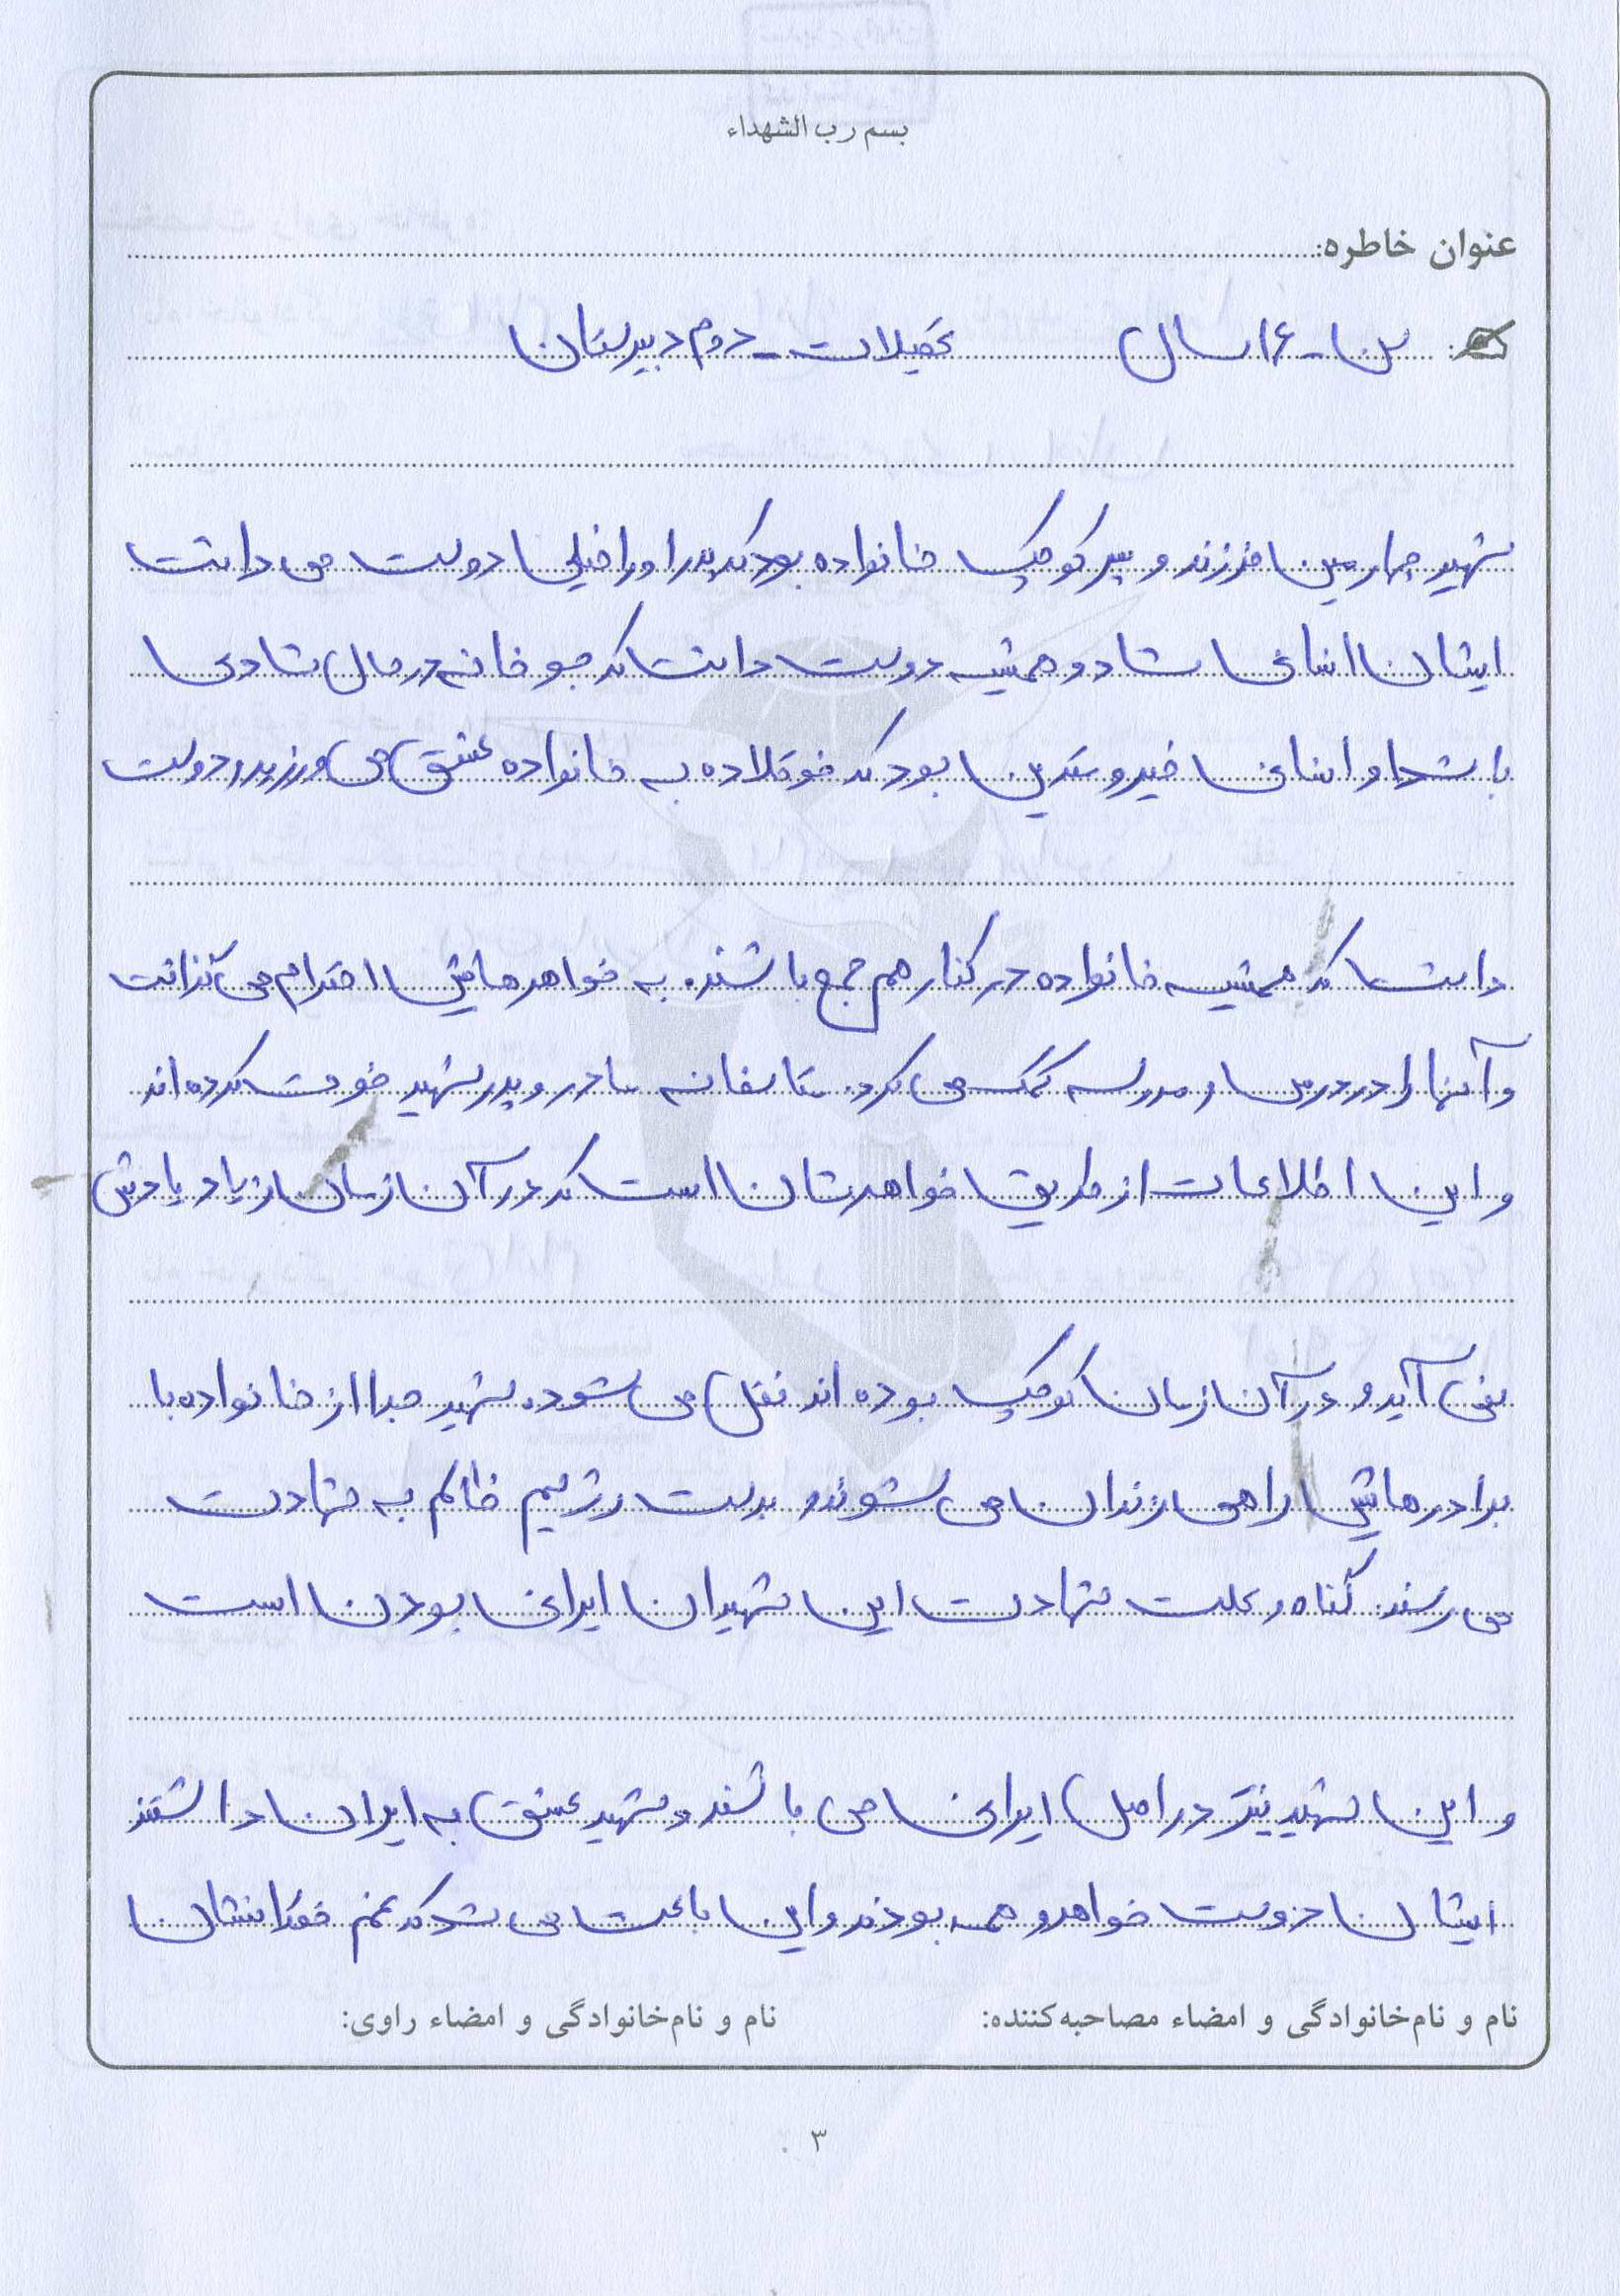 بسم رب الشهداء
عنوان خاطره:
سن - ۱۶ سال تحصیلات - دوم دبیرستان
شهید چهارمین فرزند و پسر کوچک خانواده بود که پدر او را خیلی دوست می داشت
ایشان انسانی شاد و همیشه دوست داشت که جو خانه در حال شادی
باشد و انسانی خیرو متدین بود که فوقلاده به خانواده عشق می ورزید و دوست
داشت که همیشه خانواده در کنار هم جمع باشند. به خواهرهایش احترام می گذاشت
و آنها را در درس و مدرسه کمک می کرد. متاسفانه مادر و پدر شهید فوت کرده اند
و این اطلاعات از طریق خواهرشان است که در آن زمان زیاد یادش
نمی آید و در آن زمان کوچک بوده اند نقل می شود. شهید جدا از خانواده با
برادرهایش راهی زندان می شوند و بدست رژیم ظالم به شهادت
می رسند. گناه و علت شهادت این شهیدان ایرانی بودن است
و این شهید نیز در اصل ایرانی می باشند و شهید عشق به ایران داشتند
ایشان دوست خواهر و همه بودند و این باعث می شد که غم فقدانشان
نام و نام‌خانوادگی و امضاء مصاحبه‌کننده: نام و نام‌خانوادگی و امضاء راوی:
۳